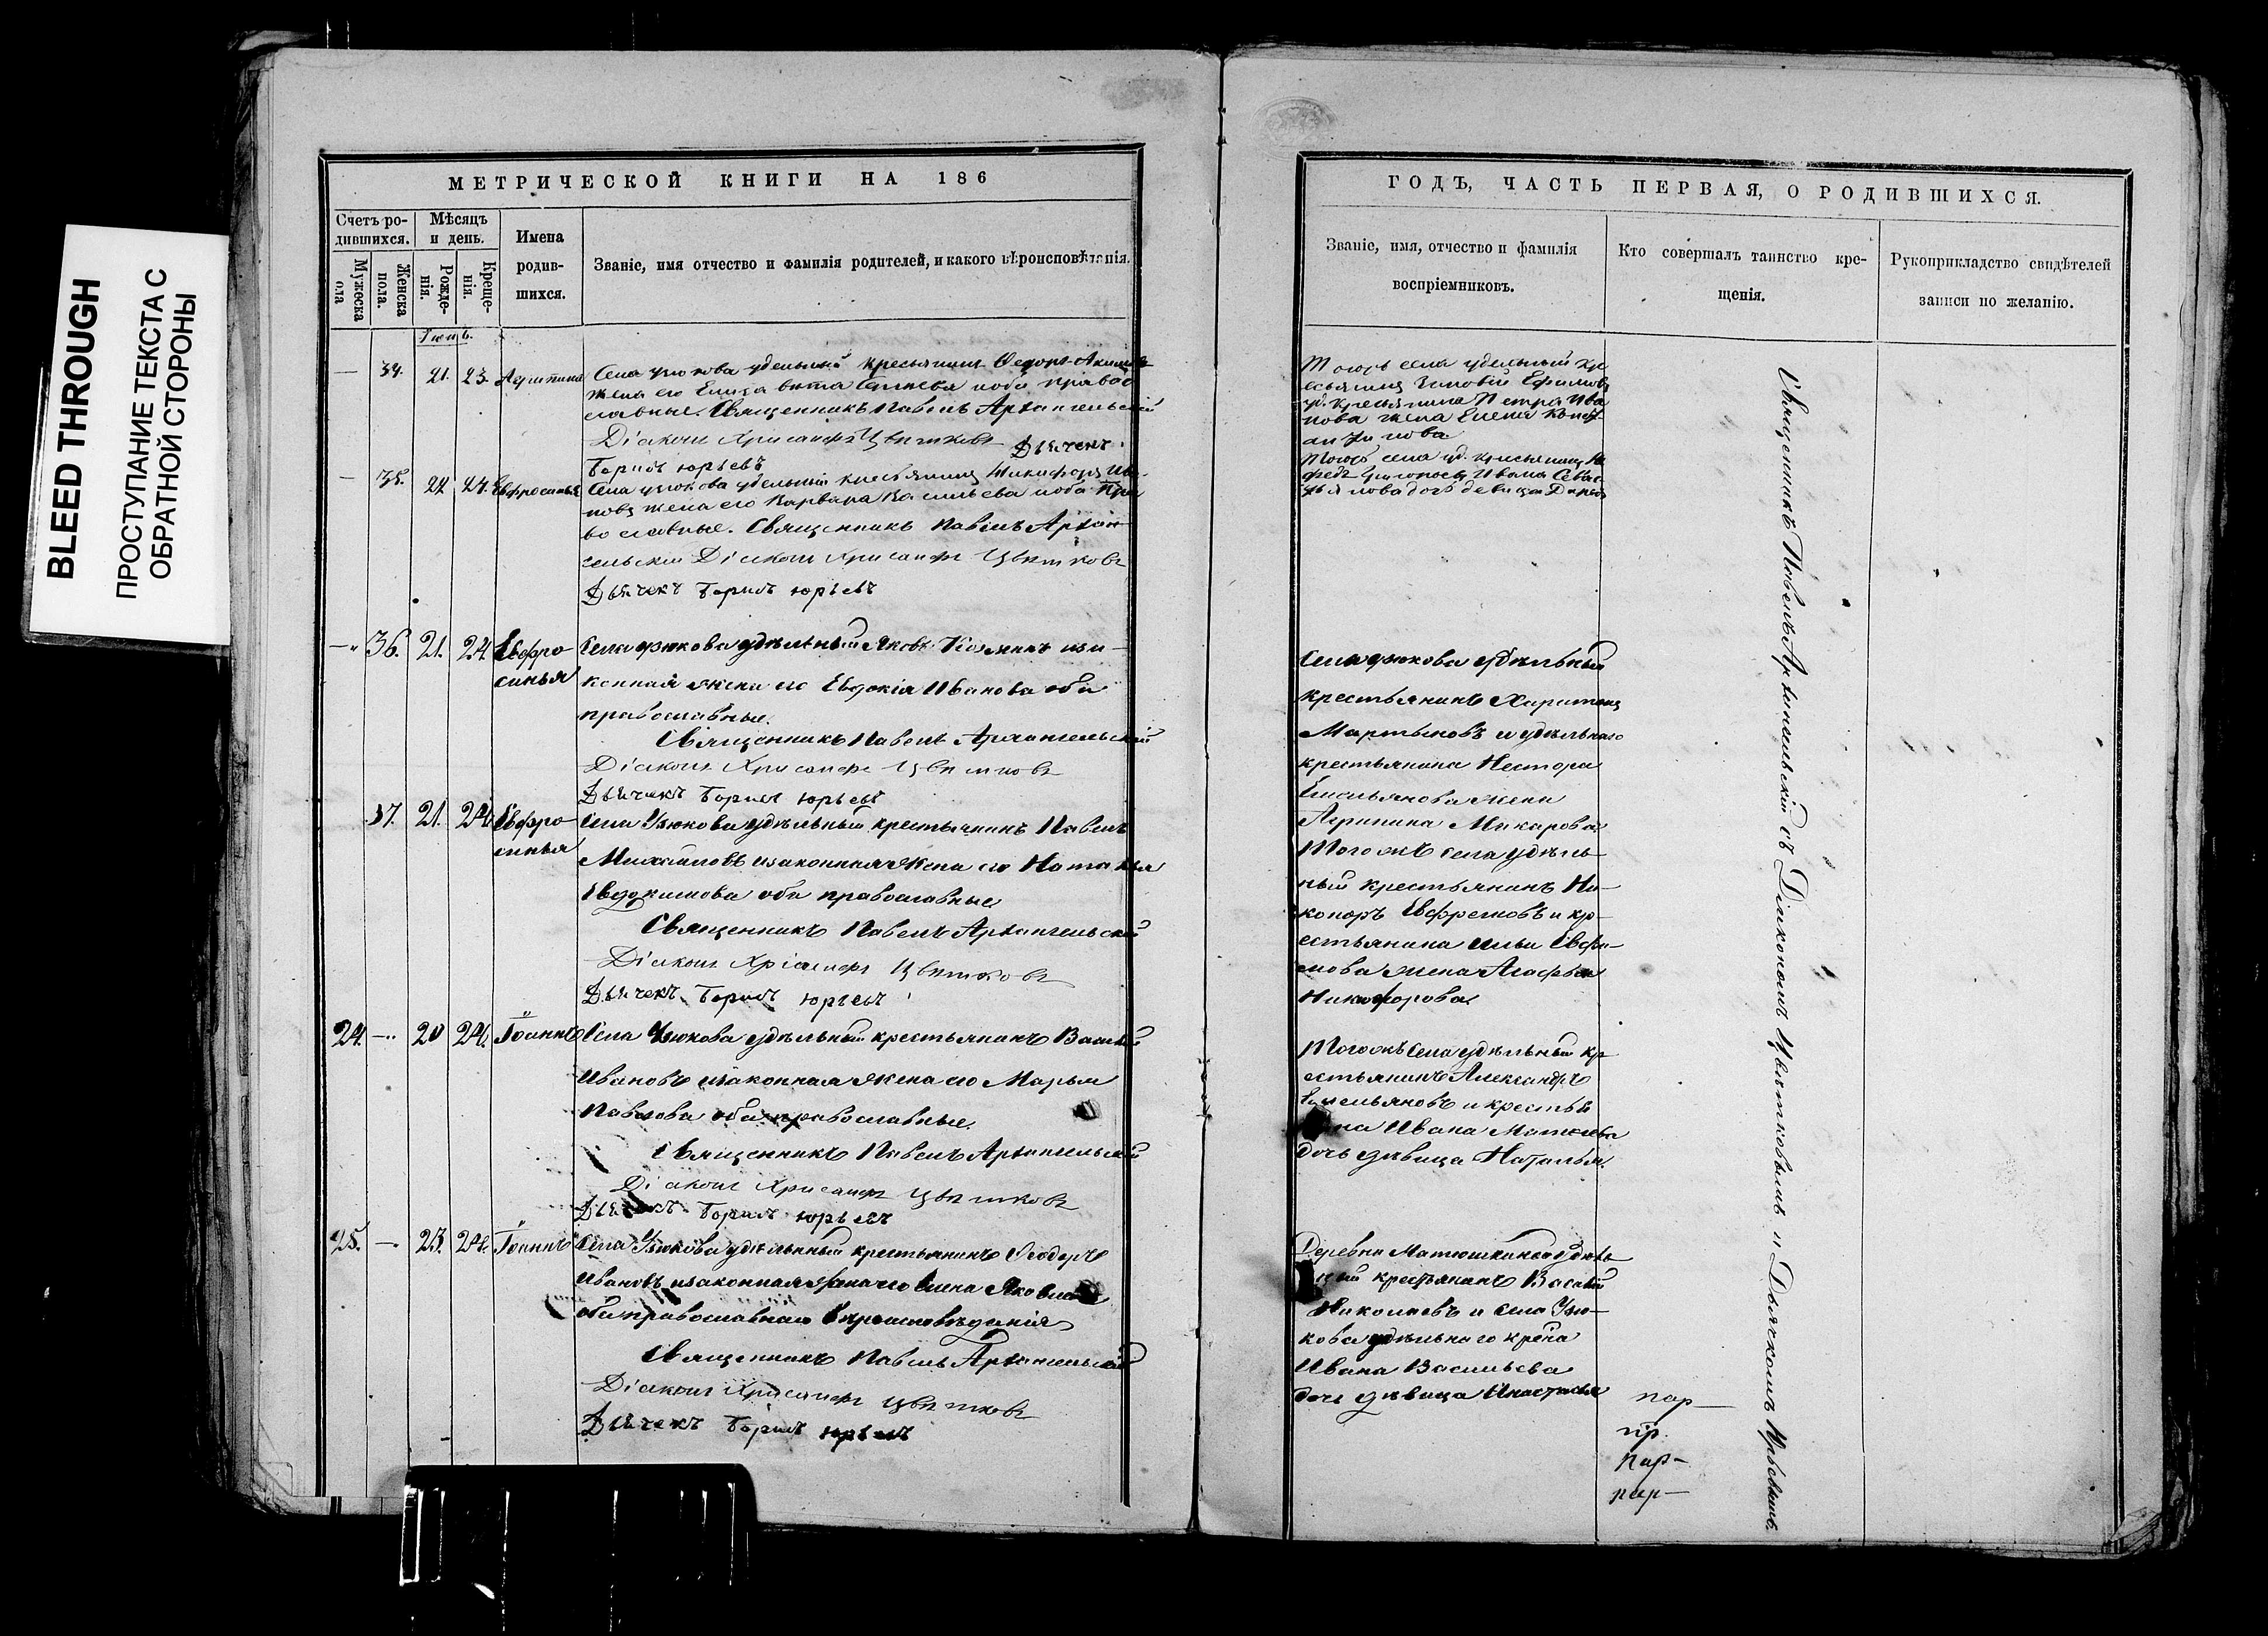 BLEED THROUGH
ПРОСТУПАНИЕ ТЕКСТА С
ОБРАТНОЙ СТОРОНЫ
МЕТРИЧЕСКОЙ КНИГИ НА 186
Счетъ ро-
дившихся.
Мужеска
пола
Женска
пола.
Мѣсяцъ
и день.
Рожде-
нія.
Креще-
нія.
Имена
родив-
шихся.
Званіе, имя отчество и фамилія родителей, и какого вѣроисповѣданія.
34. 21. 23. Села удельный крестьянинъ Федоръ
жена его православные. Священникъ Павелъ Архангельскій
Діаконъ Хрисанфъ Цвѣтковъ Дьячекъ
Борисъ Юрьевъ
35. 22. 24. Евфросинья Села удельный крестьянинъ Никифоръ Ива-
новъ жена его Варвара Васильева оба пра
во славные. Священникъ ПавелъАрхан
гельскій Діаконъ Хрисанфъ Цвѣтковъ
Дьячекъ Борисъ Юрьевъ
36. 21. 24. Евфро-
синья
Села удѣльный Яковъ изи-
конная жена его Евдокія Иванова оба
православные.
Священникъ Павелъ Архангельскій
Діаконъ Хрисанфъ Цвѣтковъ
Дьячекъ Борисъ Юрьевъ
37. 21. 24. Евфро-
синья
Села Узюкова удѣльный крестьянинъ Павелъ
Михайловъ изаконная жена его Наталья
Евдокимова оба православные
Священникъ Павелъ Архангельскій
Діаконъ Хрісанфъ Цвѣтковъ
Дьячекъ Борисъ Юрьевъ
24. 20 24. Іоаннъ Села Узюкова удѣльный крестьянинъ Василій
Ивановъ изаконная жена его Марья
Павлова оба православные.
Священникъ Павелъ Архангельскій
Діаконъ Хрисанфъ Цвѣтковъ
Дьячекъ Борисъ Юрьевъ
25. 23. 24. Іоаннъ Села Узюкова удѣльный крестьянинъ Ѳеодоръ
Ивановъ изаконная жена его Елена Яковлева
оба православнаго вѣроисповѣданія
Священникъ Павелъ Архангельскій
Діаконъ Хрисанфъ Цвѣтковъ
Дьячекъ Борисъ Юрьевъ
ГОДЪ, ЧАСТЬ ПЕРВАЯ, О РОДИВШИХСЯ.
Званіе, имя, отчество и фамилія
воспріемниковъ.
Кто совершалъ таинство кре-
щенія.
Рукоприкладство свидѣтелей
записи по желанію.
Тогожъ села удельный кр
естьянинъ Зиновій Ефимовъ
уд. крестьянина Петра Ива
нова жена Елена
Тогожъ села уд. крестьянинъ
Ивана
дочь девица Дарья
Села удѣльный
крестьянинъ Харитонъ
Мартыновъ и удѣльнаго
крестьянина Нестора
Емельянова жена
Агрипина Макарова
Того жъ села удѣль-
ный крестьянинъ Ни-
каноръ Евфремовъ и кр-
естьянина Ильи
жена Агафья
Никифорова
Того жъ села удѣльный кр
естьянинъ Александръ
Емельяновъ и крестья
нина Ивана
дочь дѣвица Наталья.
Деревни Матюшкиной удѣль
ный крестьянинъ Василій
Николаевъ и села Узю-
кова удѣльнаго крѣна
Ивана Васильева
дочь дѣвица Анастасья
Священникъ Павелъ Архангельскій съ Діакономъ Цвѣтковымъ и Дьячкомъ Юрьевымъ.
пар-
пр.
пар-
пар-